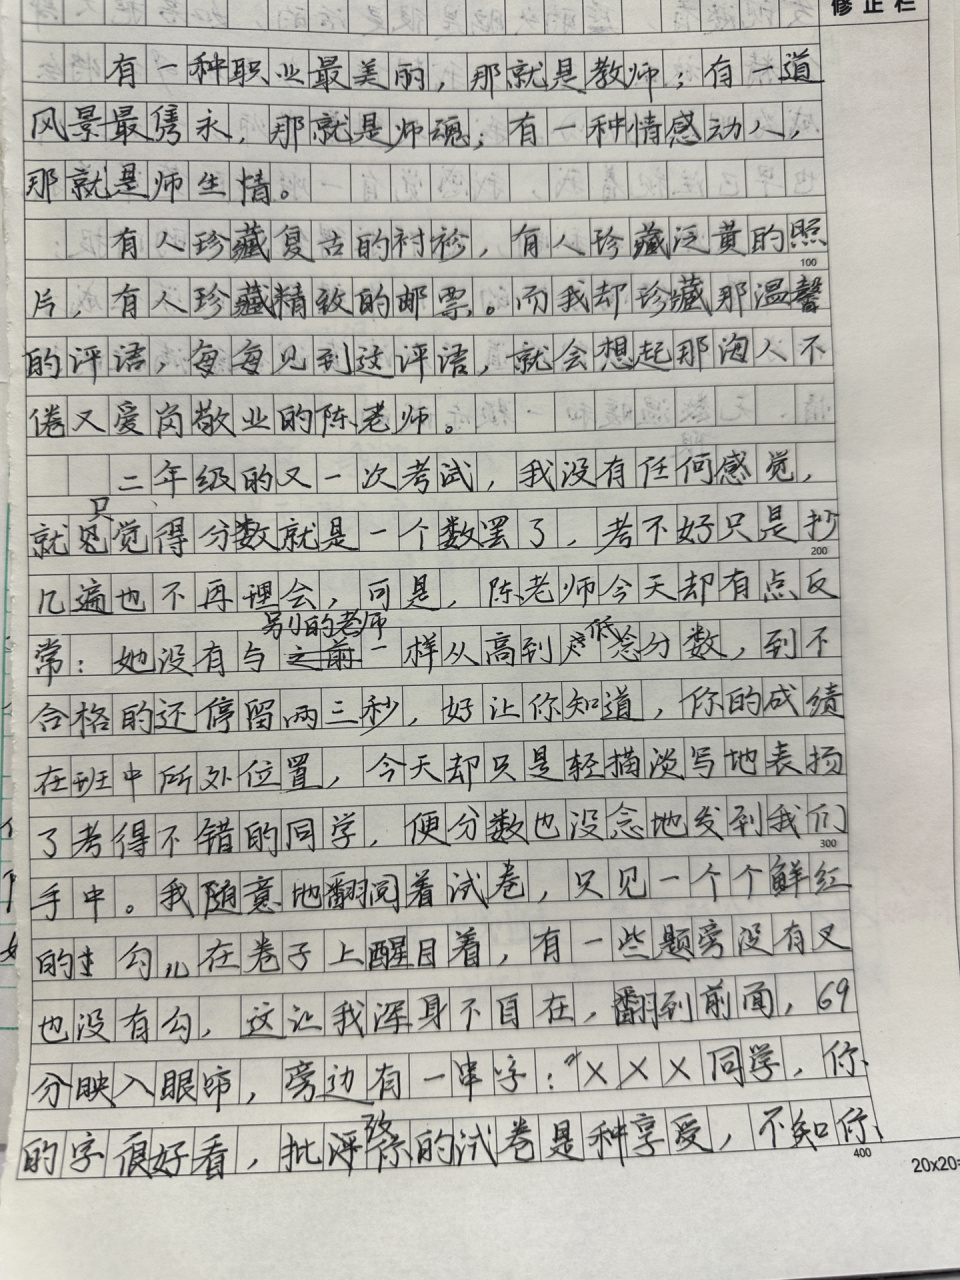 修正栏
有一种职业最美丽，那就是教师；有一道
风景最隽永，那就是师魂；有一种情感动人，
那就是师生情。
有人珍藏复古的衬衫，有人珍藏泛黄的照
100
片，有人珍藏精致的邮票。而我却珍藏那温馨
的评语，每每见到这评语，就会想起那诲人不
倦又爱岗敬业的陈老师。
二年级的又一次考试，我没有任何感觉，
就只觉得分数就是一个数罢了，考不好只是抄
200
几遍也不再理会，可是，陈老师今天却有点反
常：她没有与别的老师一样从高到低念分数，到不
合格的还停留两三秒，好让你知道，你的成绩
在班中所处位置，今天却只是轻描淡写地表扬
了考得不错的同学，便分数也没念地发到我们
300
手中。我随意地翻阅着试卷，只见一个个鲜红
的勾儿在卷子上醒目着，有一些题旁没有叉
也没有勾，这让我浑身不自在，翻到前面，69
分映入眼帘，旁边有一串字：“XXX同学，你
的字很好看，批改你的试卷是种享受，不知你
400
20x20=